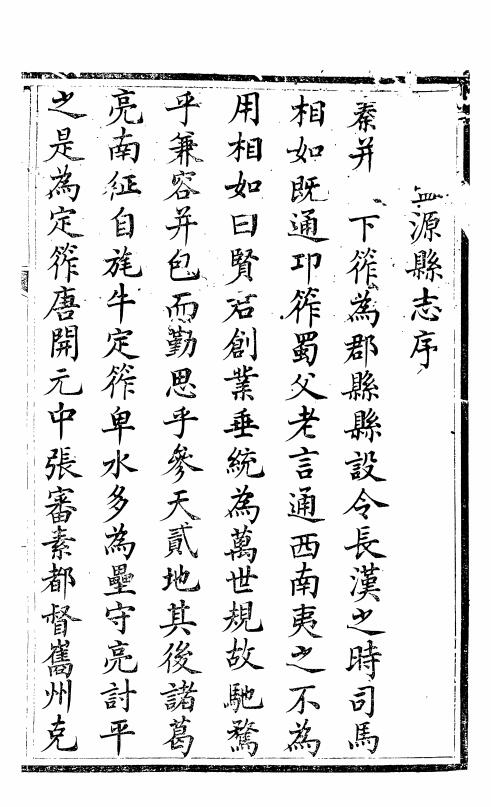 源縣志序
秦并下筰為郡縣縣設令長漢之時司馬
相如既通卭筰蜀父老言通西南夷之不為
用相如曰賢君創業垂統為萬世規故馳騖
乎兼容并包而勤思乎參天貳地其後諸葛
亮南征自旄牛定筰卑水多為壘守亮討平
之是為定筰唐開元中張審素都督巂州克